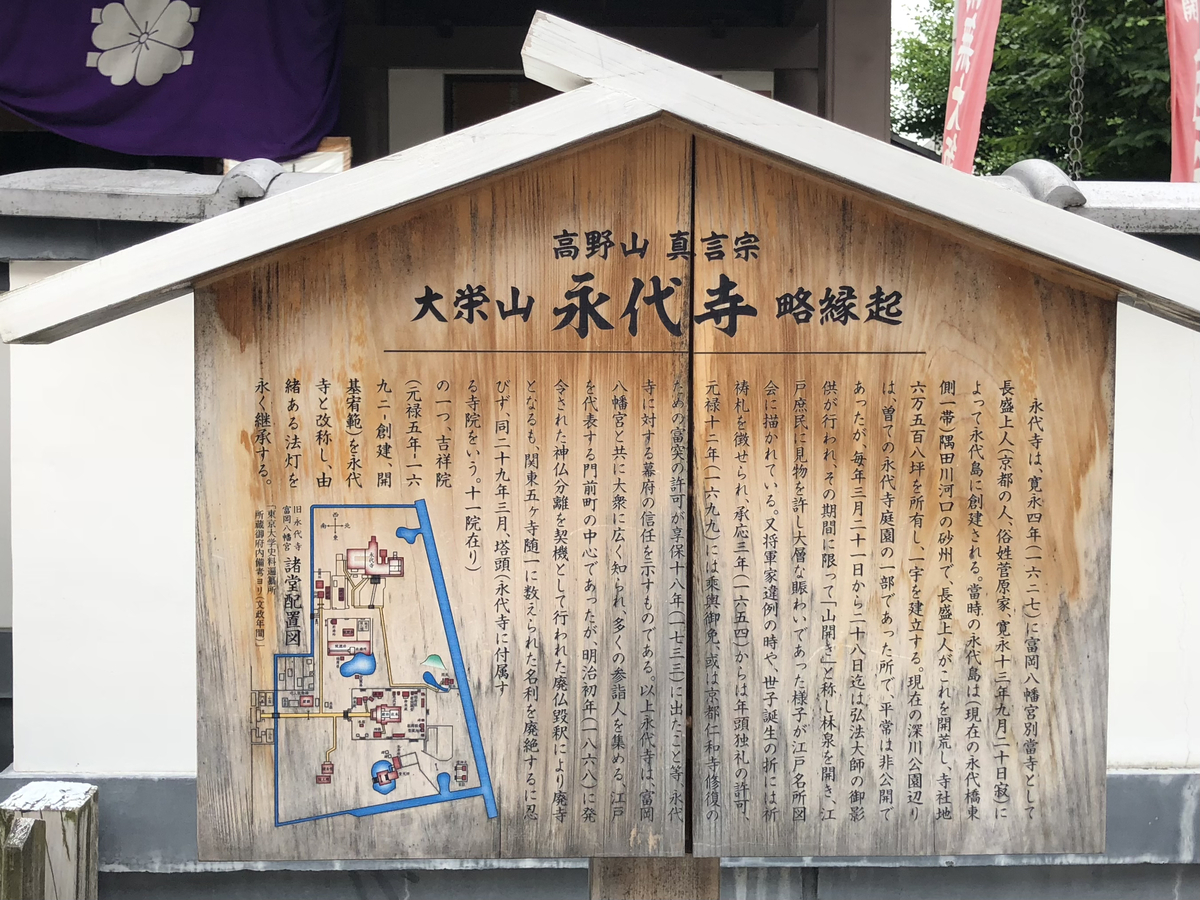 高野山 真言宗
大栄山 永代寺 略縁起
永代寺は、寛永四年(一六二七)に富岡八幡宮別當寺として
長盛上人(京都の人、俗姓菅原家、寛永十三年九月二十日寂)に
よって永代島に創建される。當時の永代島は(現在の永代橋東
側一帯)隅田川河口の砂州で、長盛上人がこれを開荒し、寺社地
六万五百八坪を所有し、一宇を建立する。現在の深川公園辺り
は、曽ての永代寺庭園の一部であった所で、平常は非公開で
あったが、毎年三月二十一日から二十八日迄は弘法大師の御影
供が行われ、その期間に限って「山開き」と称し林泉を開き、江
戸庶民に見物を許し大層な賑わいであった様子が江戸名所図
会に描かれている。又将軍家違例の時や、世子誕生の折には祈
祷札を徴せられ、承応三年(一六五四)からは年頭独礼の許可、
元禄十二年(一六九九)には乗輿御免、或は京都仁和寺修復の
ための富突の許可が享保十八年(一七三三)に出たこと等、永代
寺に対する幕府の信任を示すものである。以上永代寺は、富岡
八幡宮と共に大衆に広く知られ、多くの参詣人を集める、江戸
を代表する門前町の中心であったが明治初年(一八六八)に発
令された神仏分離を契機として行われた廃仏毀釈により廃寺
となるも、関東五ヶ寺随一に数えられた名刹を廃絶するに忍
びず、同二十九年三月、塔頭(永代寺に付属す
る寺院をいう。十一院在り)
の一つ、吉祥院
(元禄五年・一六
九二・創建、開
基宥範)を永代
寺と改称し、由
緒ある法灯を
永く継承する。
旧永代寺
富岡八幡宮 諸堂配置図
「東京大学史料編纂所
所蔵御府内備考ヨリ(文政年間)」
北
南